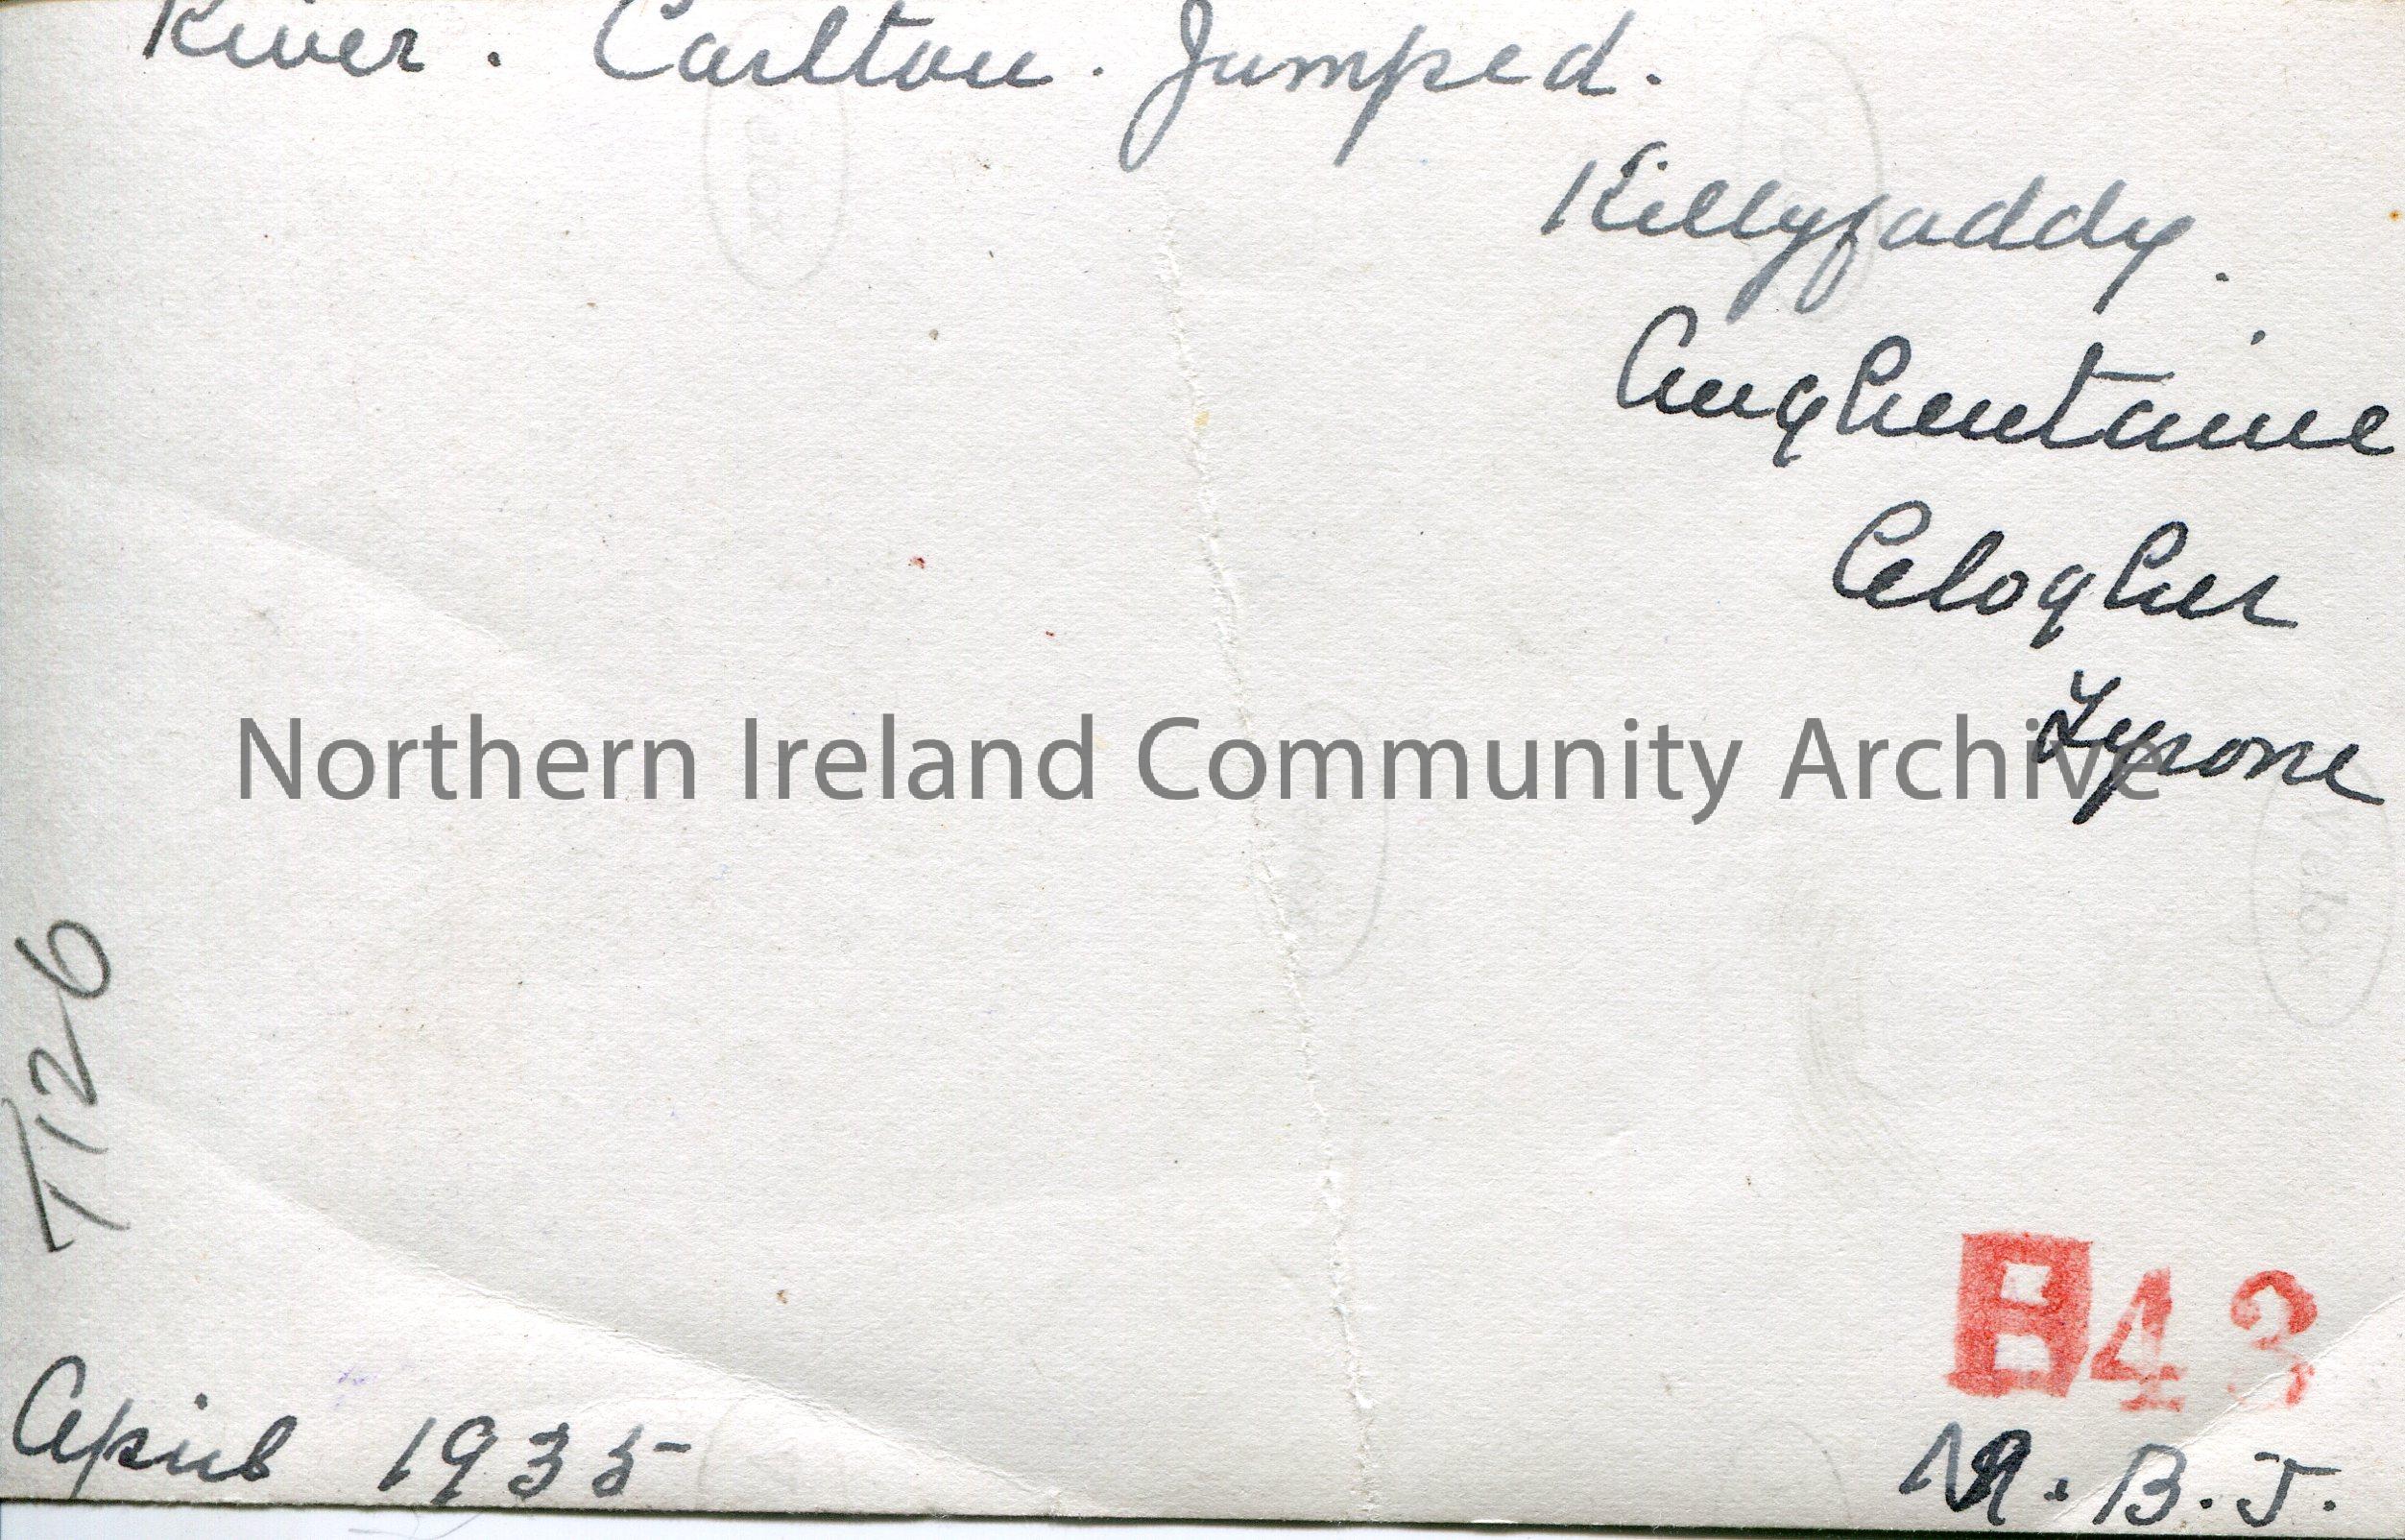 River. Carlton. Jumped.
Killyfaddy.
Aughentaine
Clogher
Tyrone
Northern Ireland Community Archive
T126
B43
April 1935
B.J.
Velox